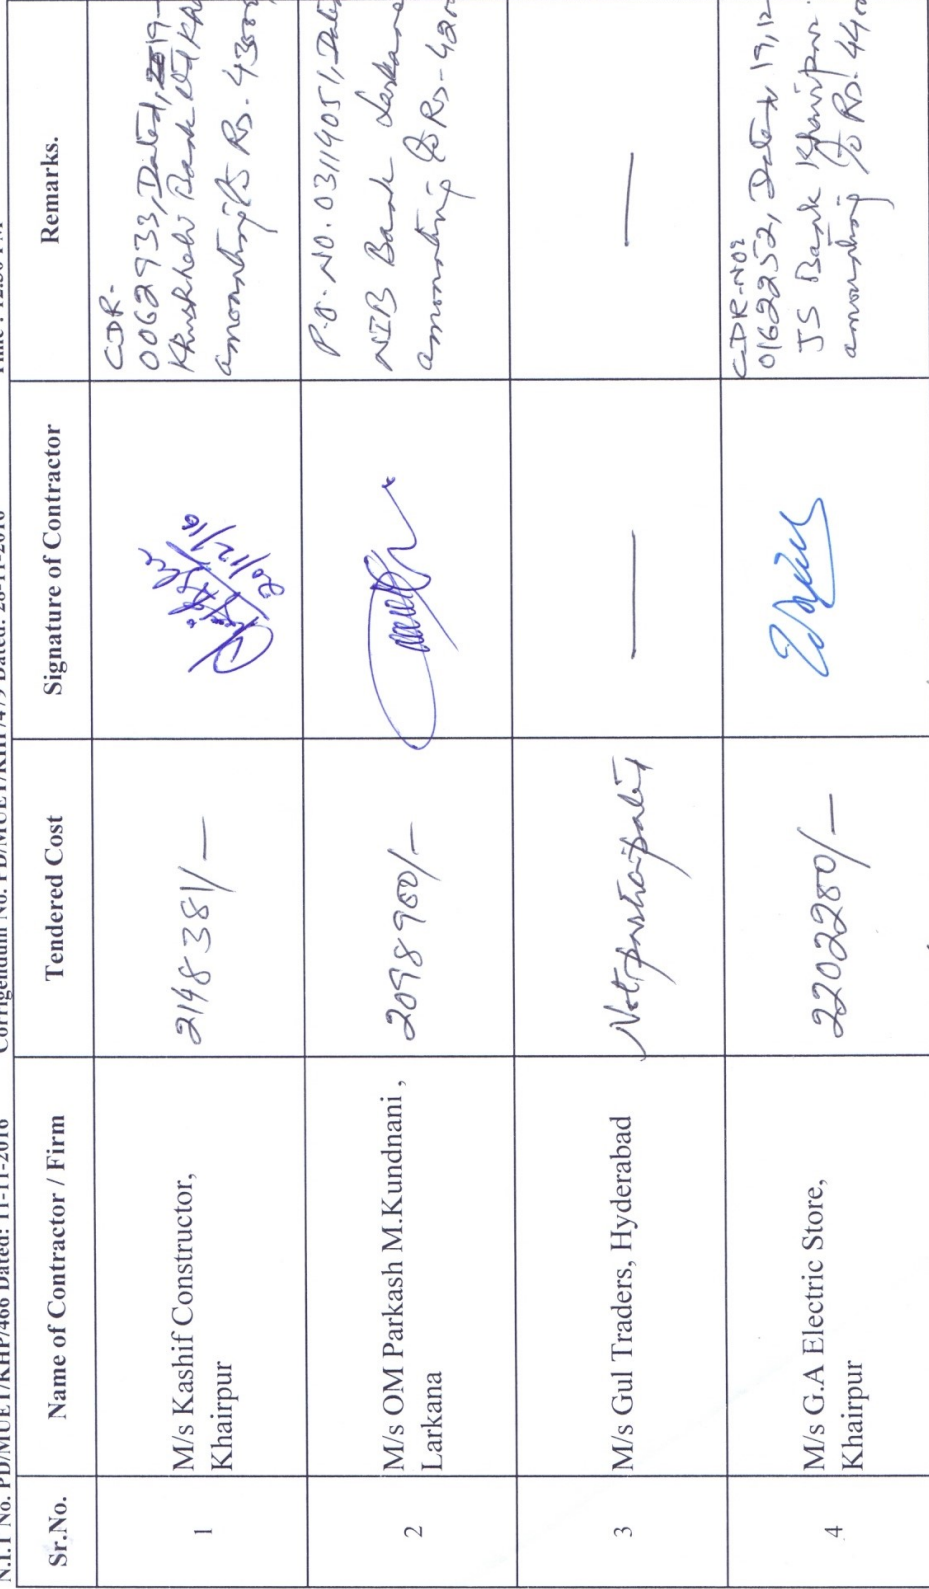 N.I.T No. PD/MUET/KHP/466 Dated: 11-11-2016 Corrigendum No. PD/MUET/KHP/479 Dated: 28-11-2016 Time : 12:30 PM
Sr.No. Name of Contractor / Firm Tendered Cost Signature of Contractor Remarks.
1
M/s Kashif Constructor,
Khairpur
2148381/-
20/12/16
CDR-
0062933, Dated, 2019-
Khushhali Bank
amounting to Rs. 43000
2
M/s OM Parkash M.Kundnani ,
Larkana
2098900/-
P.O. NO. 03114051, Date
NIB Bank Larkana
amounting to Rs- 4200
3
M/s Gul Traders, Hyderabad
Not participated
—
—
4
M/s G.A Electric Store,
Khairpur
2202280/-
CDR-NO:
01622252, Dated 19,12-
JS Bank Khairpur
amounting to Rs. 44,00